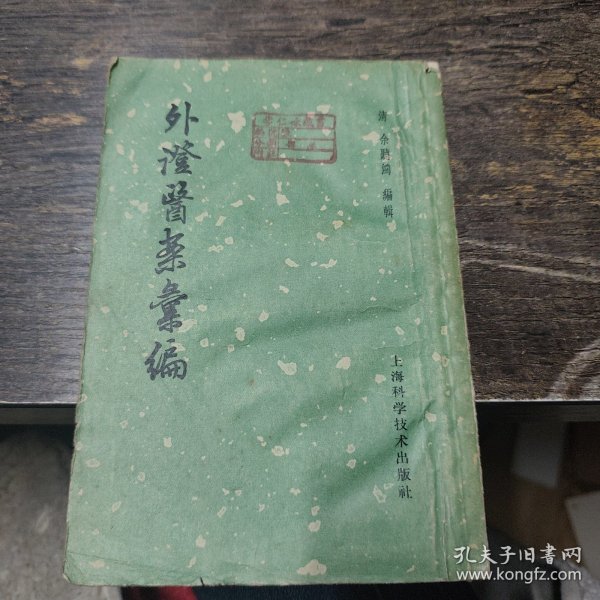 外證醫案彙編
清 余聽鴻 編輯
上海科学技术出版社
孔夫子旧书网
www.kongfz.com